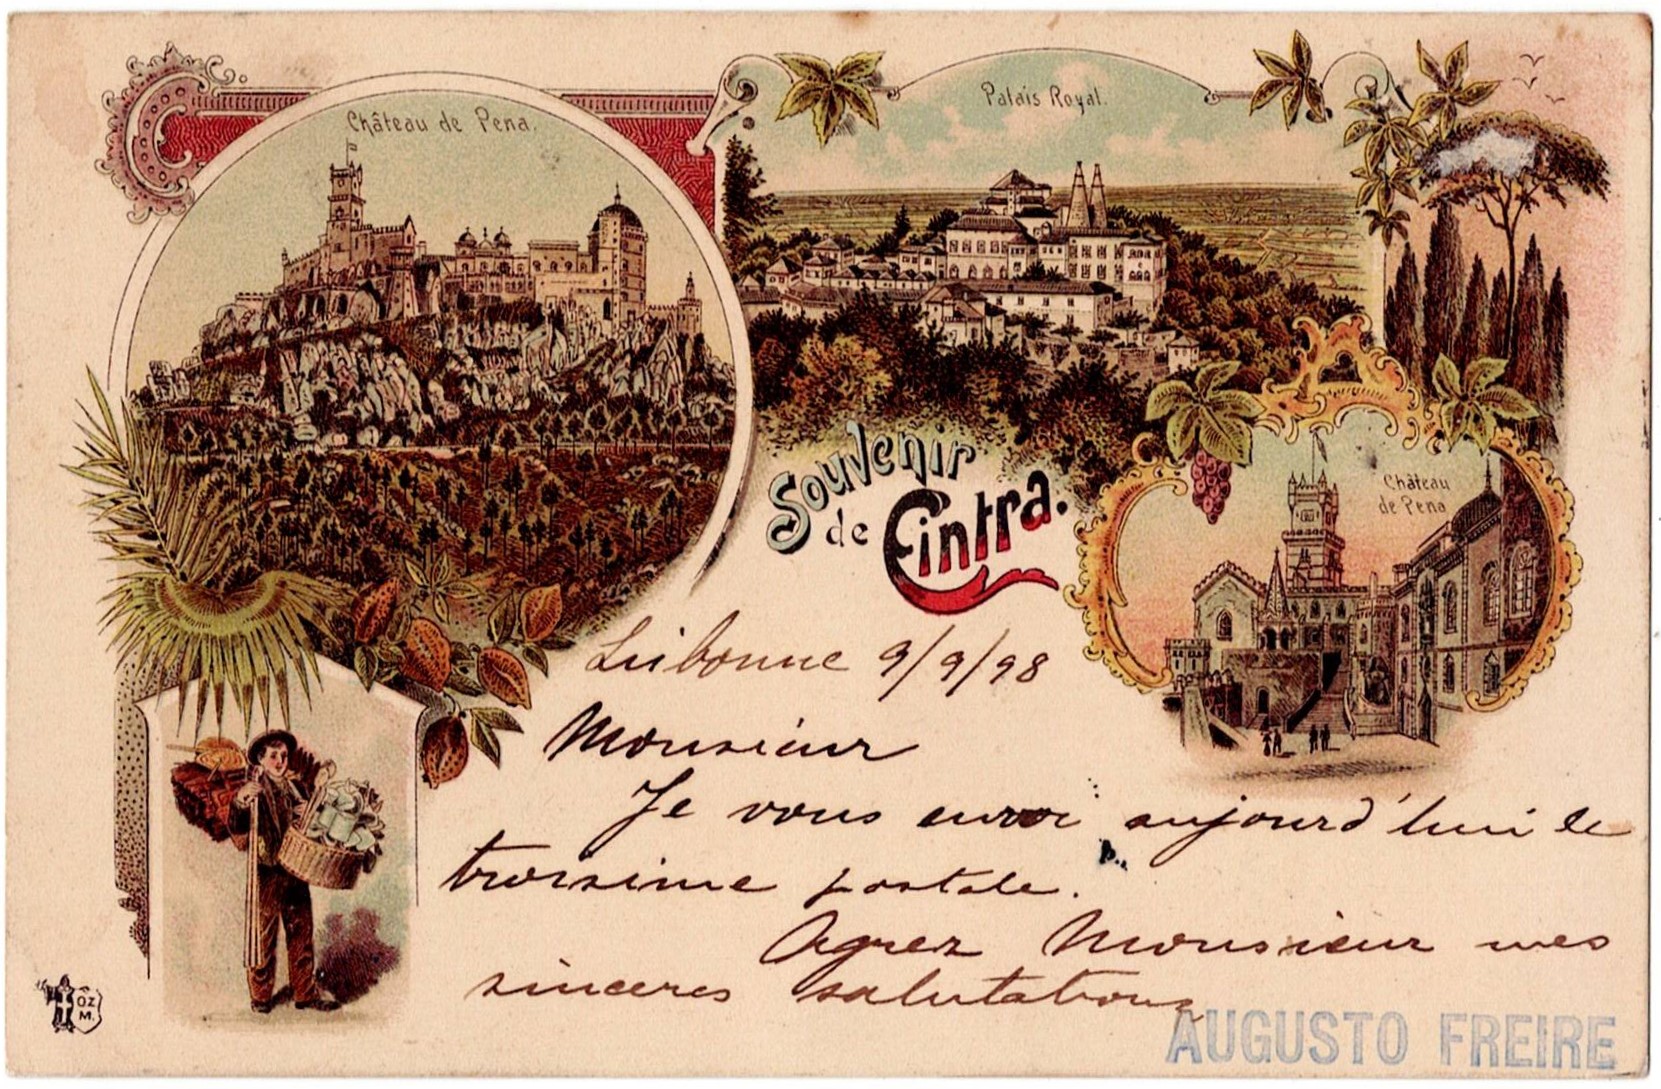 Château de Pena.
Palais Royal.
Château
de Pena
Souvenir
de Cintra.
Lisbonne 9/9/98
Monsieur
Je vous envoi aujourd'hui le
troisime postale.
Agrez Monsieur mes
sinceres salutations
AUGUSTO FREIRE
OZ
M.